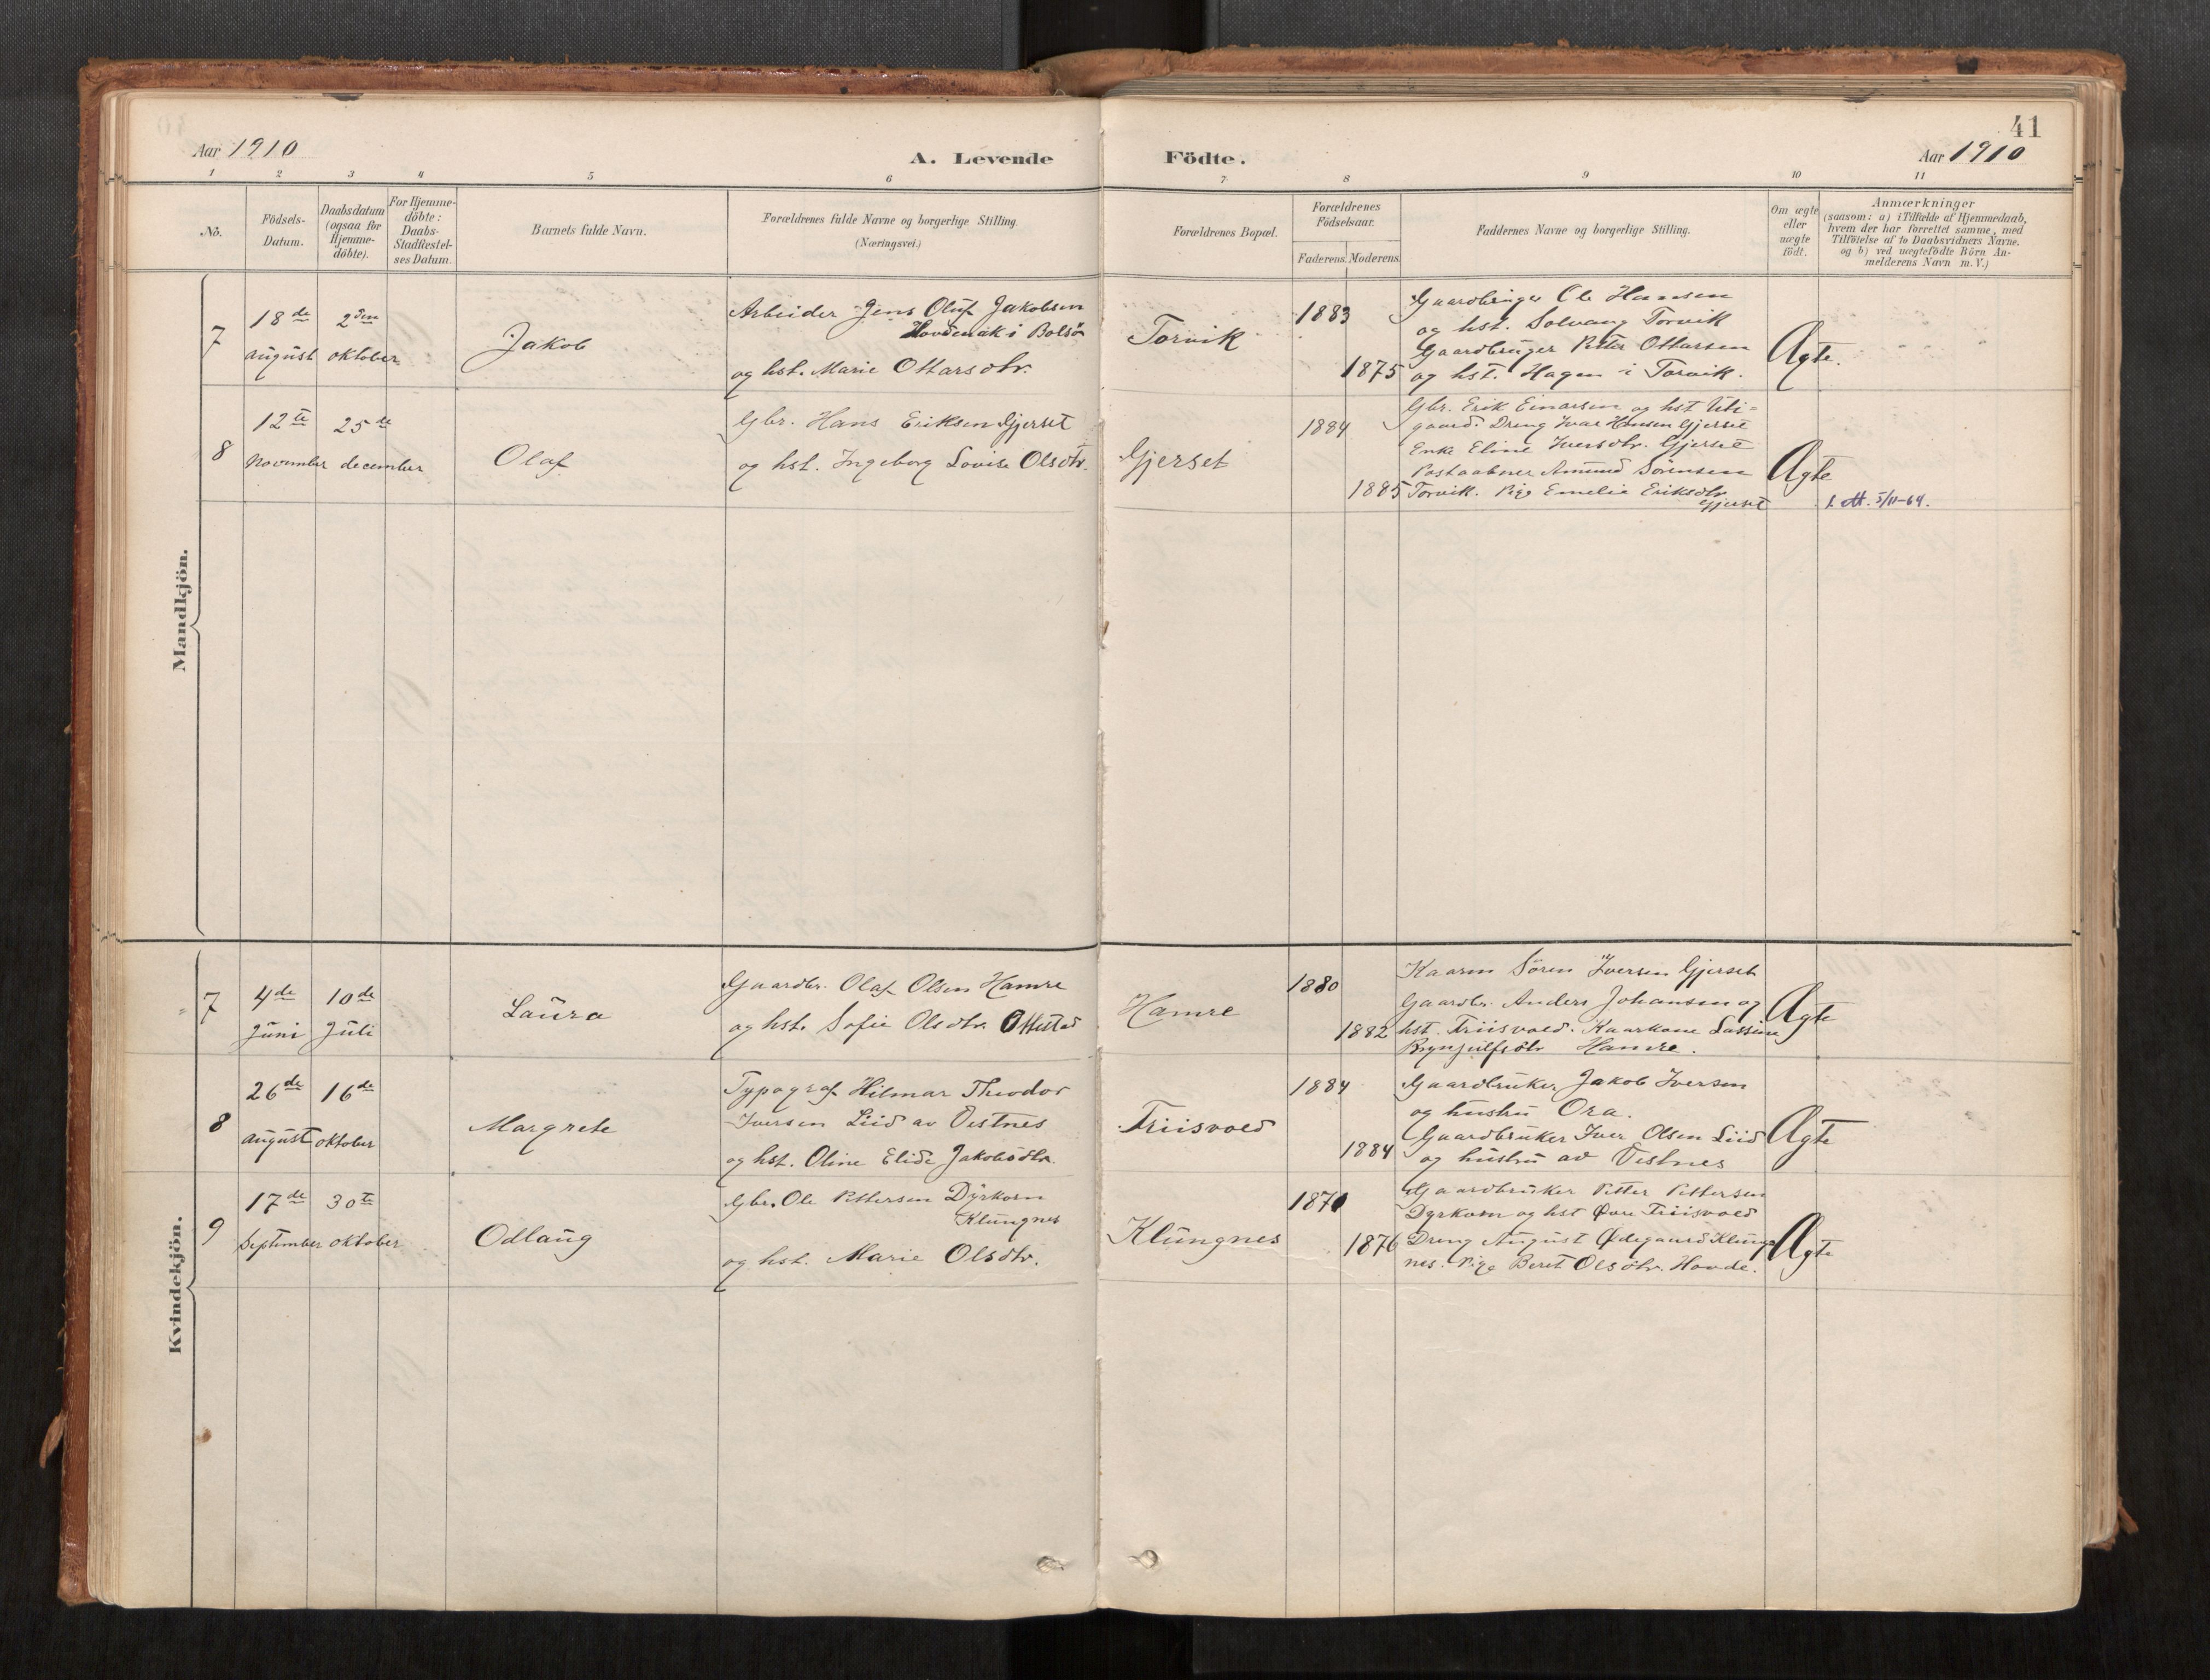 41
Aar 1910
A. Levende Födte.
Aar 1910
1 2 3 4 5 6 7 8 9 10 11
No.
Födsels-
Datum.
Daabsdatum
(ogsaa for
Hjemme-
döbte).
For Hjemme-
döbte:
Daabs-
Stadfæstel-
ses Datum.
Barnets fulde Navn.
Forældrenes fulde Navne og borgerlige Stilling.
(Næringsvei.)
Forældrenes Bopæl.
Forældrenes
Födselsaar.
Faderens. Moderens.
Faddernes Navne og borgerlige Stilling.
Om ægte
eller
uægte
født.
Anmærkninger
(saasom: a) i Tilfælde af Hjemmedaab,
hvem der har forrettet samme, med
Tilföielse af to Daabsvidners Navne,
og b) ved uægtefödte Börn An-
melderens Navn m. V.)
Mandkjön.
7
18de
august
2den
oktober
Jakob
Arbeider Jens Oluf Jakobsen
Hovdenak i Bolsö
og hst. Marie Ottarsdtr.
Torvik
1883
1875
Gaardbruger Ole Hansen
og hst. Solvang Torvik
Gaardbruger Petter Ottarsen
og hst. Hagen i Torvik.
Ægte.
8
12te
november
25de
december
Olaf
Gbr. Hans Eriksen Gjerset
og hst. Ingeborg Lovise Olsdtr.
Gjerset
1884
1885
Gbr. Erik Einarsen og hst. Uti-
gaard. Dreng Ivar Hansen Gjerset
Enke Eline Iversdtr. Gjerset
Postaabner Amund Sörensen
Torvik. Pige Emelie Eriksdtr.
Gjerset
Ægte
1. Att. 5/11-64.
Kvindekjön.
7
4de
Juni
10de
Juli
Laura
Gaardbr. Olaf Olsen Hamre
og hst. Sofie Olsdtr. Ottestad
Hamre
1880
1882
Kaarm Sören Iversen Gjerset
Gaardbr. Anders Johansen og
hst. Friisvold. Kaarkone Lassine
Brynjulfsdtr Hamre.
Ægte
8
26de
august
16de
oktober
Margrete
Typograf Hilmar Theodor
Iversen Liid av Vestnes
og hst. Oline Elide Jakobsdtr.
Friisvold
1884
1884
Gaardbruker Jakob Iversen
og hustru Ora.
Gaardbruker Iver Olsen Liid
og hustru av Vestnes
Ægte
9
17de
September
30te
oktober
Odlaug
Gbr. Ole Pettersen Dyrkorn
Klungnes
og hst. Marie Olsdtr.
Klungnes
1870
1876
Gaardbruker Petter Pettersen
Dyrkorn og hst Øvre Friisvold
Dreng August Ødegaard Klung-
nes. Pige Beret Olsdtr. Hovde.
Ægte